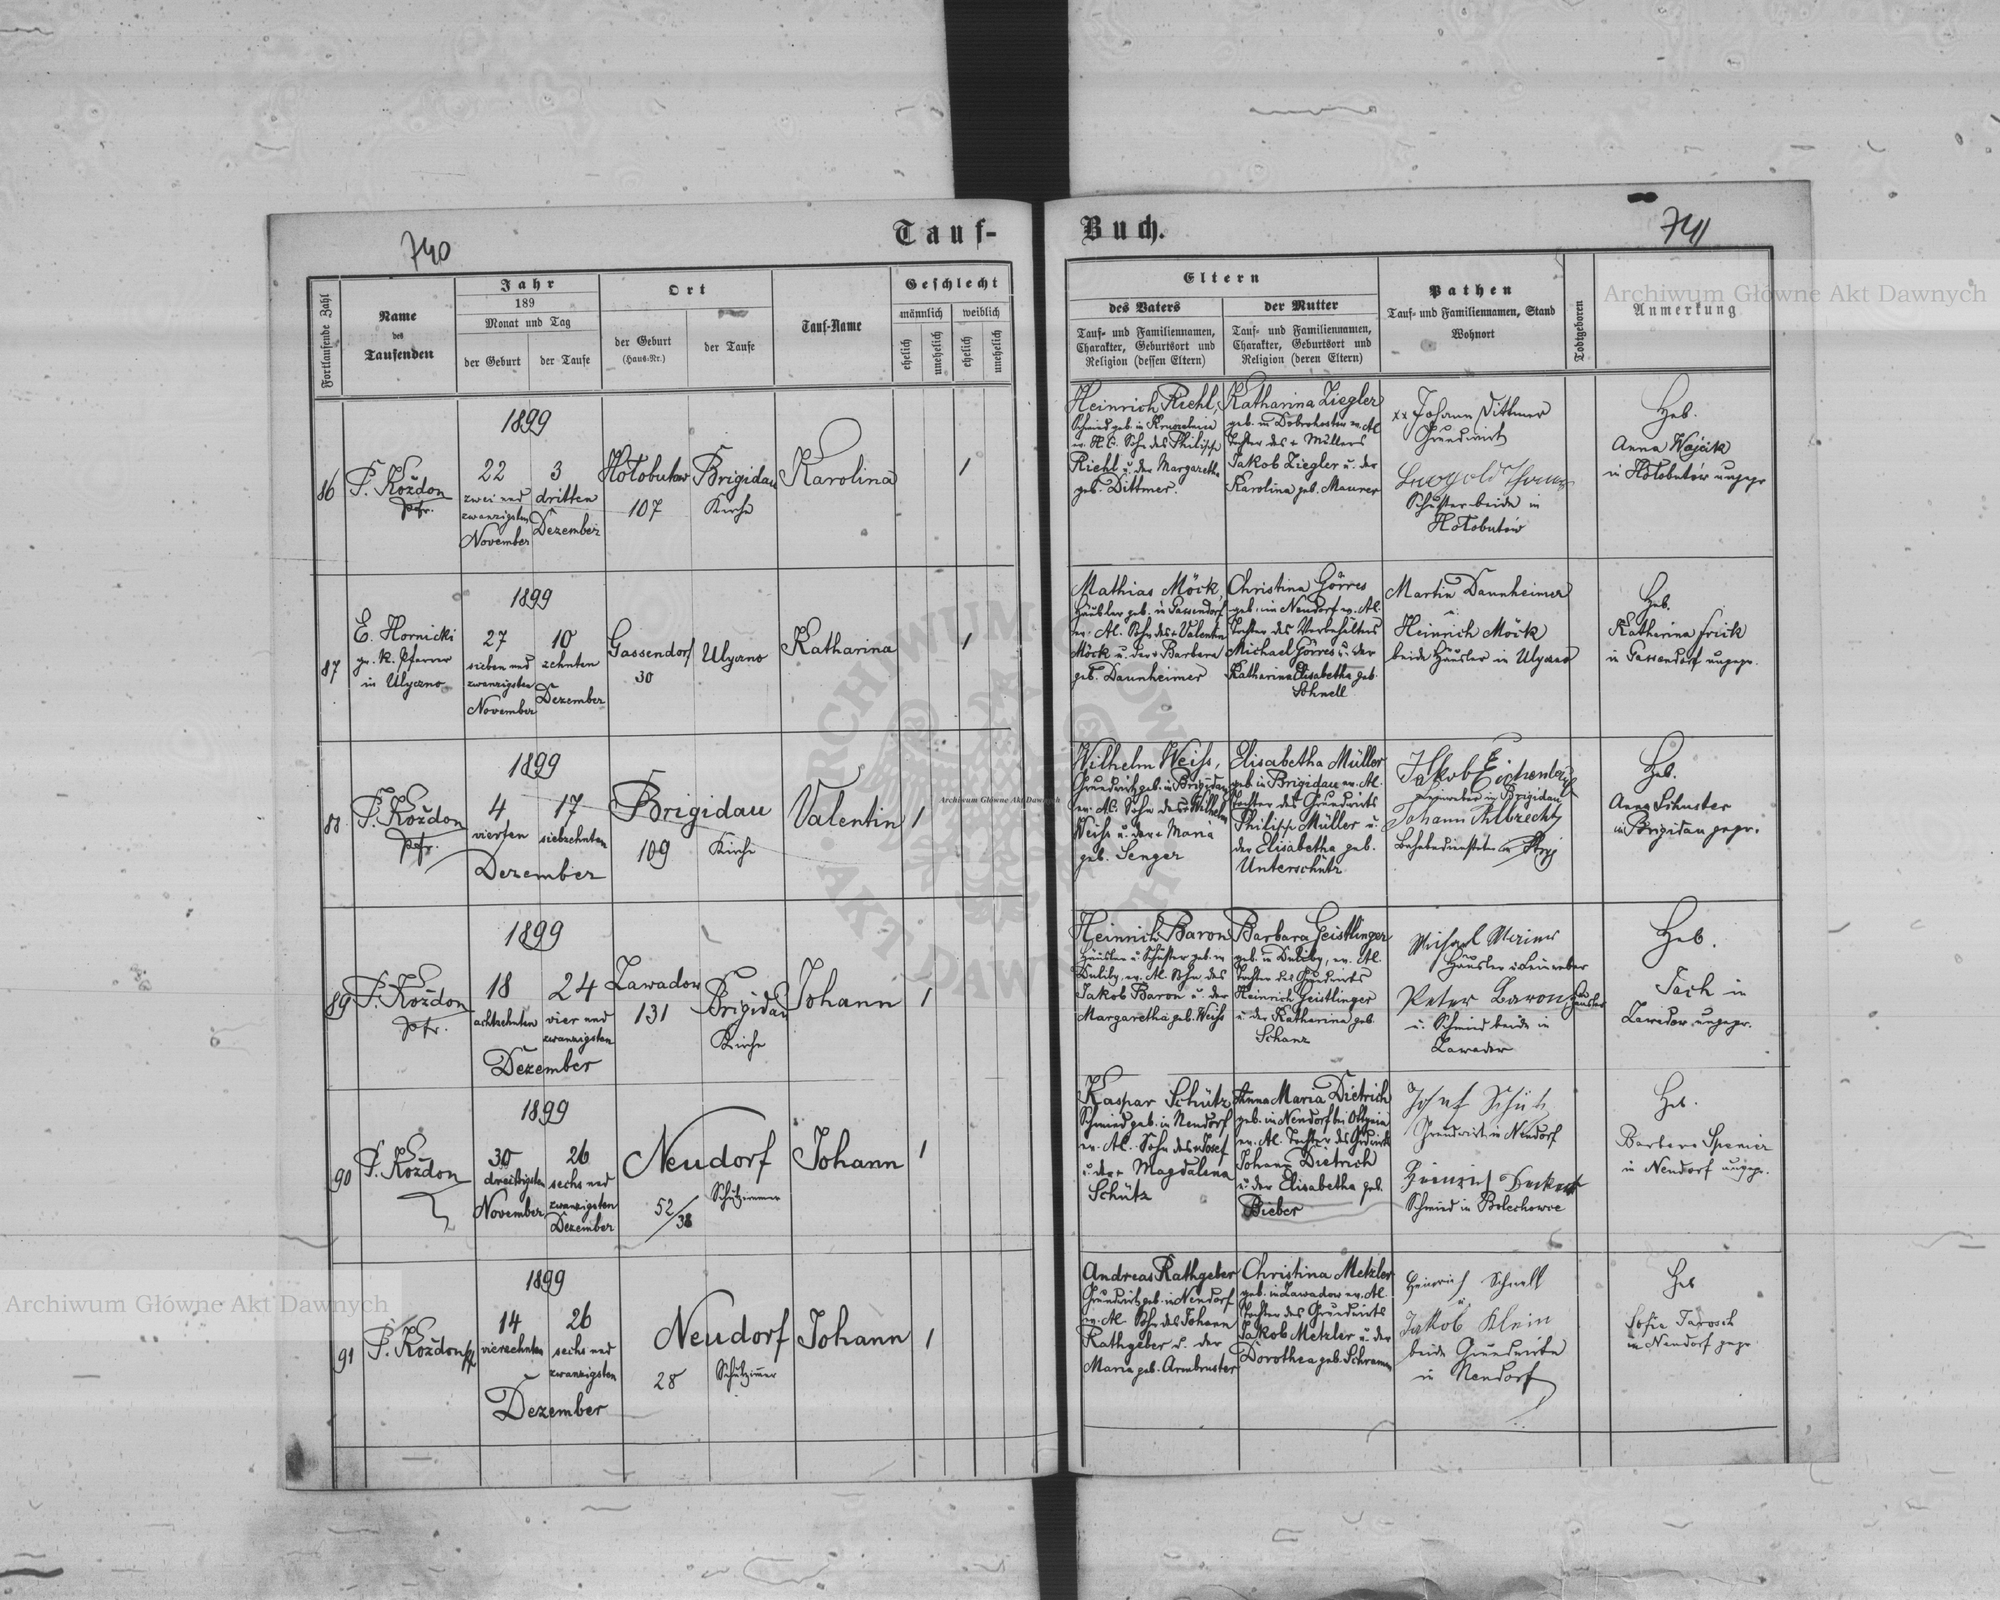 740
Tauf-
Fortlaufende Zahl
Name
des
Taufenden
Jahr
189
Monat und Tag
der Geburt
der Taufe
Ort
der Geburt
(Haus-Nr.)
der Taufe
Tauf-Name
Geschlecht
männlich
weiblich
ehelich
unehelich
ehelich
unehelich
86
P. Koždon
Pfr.
1899
22
zwei und
zwanzigsten
November
3
dritten
Dezember
Hołobutów
107
Brigidau
Kirche
Karolina
1
87
E. Hornicki
gr. k. Pfarrer
in Uliczno
1899
27
sieben und
zwanzigsten
November
10
zehnten
Dezember
Gassendorf
30
Ulyczno
Katharina
1
88
P. Koždon
Pfr.
1899
4
vierten
17
siebzehnten
Dezember
Brigidau
109
Kirche
Valentin
1
89
P. Koždon
Pfr.
1899
18
achtzehnten
24
vier und
zwanzigsten
Dezember
Zawadow
131
Brigidau
Kirche
Johann
1
90
P. Koždon
1899
30
dreißigsten
November
26
sechs und
zwanzigsten
Dezember
Neudorf
52/38
Schulzimmer
Johann
1
91
P. Koždon
1899
14
vierzehnten
26
sechs und
zwanzigsten
Dezember
Neudorf
28
Schulzimmer
Johann
1
Buch.
741
Eltern
des Vaters
Tauf- und Familiennamen,
Charakter, Geburtsort und
Religion (dessen Eltern)
der Mutter
Tauf- und Familiennamen,
Charakter, Geburtsort und
Religion (deren Eltern)
Pathen
Tauf- und Familiennamen, Stand
Wohnort
Todtgeboren
Anmerkung
Heinrich Riehl,
Schmied geb. in
ev. H. C. Sohn des Philipp
Riehl u. der Margaretha
geb. Dittmer.
Katharina Ziegler
geb. in ev. Al.
Tochter des + Müllers
Jakob Ziegler u. der
Karolina geb. Maurer
xx Johann Dittmer
Grundwirt
Leopold
Schuster beide in
Hołobutów
Heb.
Anna Wojcik
in Hołobutów ungepr.
Mathias Möck,
Häusler geb. in Gassendorf
ev. Al. Sohn des + Valentin
Möck u. der + Barbara
geb. Daunheimer
Christina Görres
geb. in Neudorf ev. Al.
Tochter des
Michael Görres u. der
Katharina Elisabetha geb.
Schnell
Martin Daunheimer
u.
Heinrich Möck
beide Häusler in Ulyczno
Heb.
Katharina Frick
in Gassendorf ungepr.
Wilhelm Weiss,
Grundwirt geb. in Brigidau
ev. Al. Sohn des + Wilhelm
Weiss u. der + Maria
geb. Senger
Elisabetha Müller
geb. in Brigidau ev. Al.
Tochter des Grundwirts
Philipp Müller u.
der Elisabetha geb.
Unterschütz
Jakob
in Brigidau
Johann Albrecht
in Stryj
Heb.
Anna Schuster
in Brigidau gepr.
Heinrich Baron
Häusler u. Schuster geb. in
Duliby, ev. Al. Sohn des
Jakob Baron u. der
Margaretha geb. Weiss
Barbara Geistlinger
geb. in Duliby, ev. Al.
Tochter des Grundwirts
Heinrich Geistlinger
u. der Katharina geb.
Schanz
Michael
Häusler u. Leinweber
Peter Baron Häusler
u. Schmied beide in
Zawadow
Heb.
in
Zawadow ungepr.
Kaspar Schütz
Schmied geb. in Neudorf
ev. Al. Sohn des + Josef
u. der + Magdalena
Schütz
Anna Maria Dietrich
geb. in Neudorf bei
ev. Al. Tochter des Grundwirts
Johann Dietrich
u. der Elisabetha geb.
Bieber
Josef Schütz
Grundwirt in Neudorf
Heinrich
Schmied in Bolechowce
Heb.
Barbara
in Neudorf ungepr.
Andreas Rathgeber
Grundwirt geb. in Neudorf
ev. Al. Sohn des Johann
Rathgeber u. der
Maria geb. Armbruster
Christina Metzler
geb. in Zawadow ev. Al.
Tochter des Grundwirts
Jakob Metzler u. der
Dorothea geb. Schramm
Heinrich Schnell
u.
Jakob Klein
beide Grundwirte
in Neudorf
Heb
Sofie Tarosch
in Neudorf gepr.
Archiwum Główne Akt Dawnych
Archiwum Główne Akt Dawnych
Archiwum Główne Akt Dawnych
ARCHIWUM GŁÓWNE
AKT DAWNYCH